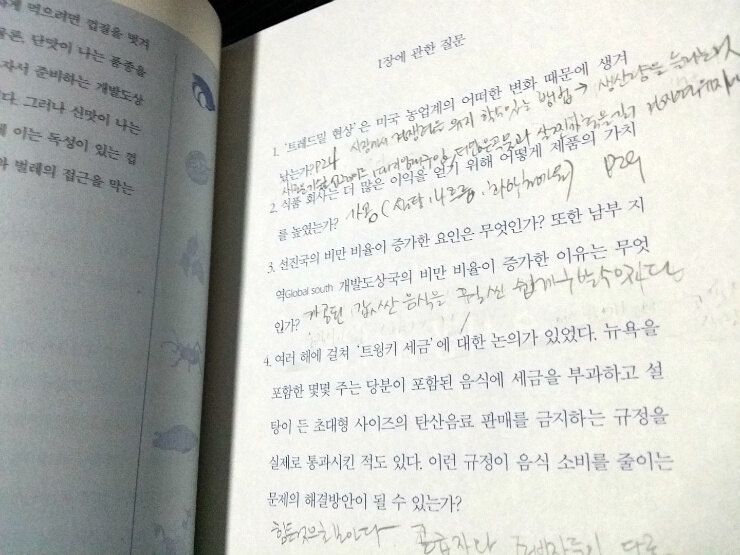 게 먹으려면 껍질을 벗겨
물론, 단맛이 나는 품종을
자서 준비하는 개발도상
다. 그러나 신맛이 나는
이는 독성이 있는 껍
벌레의 접근을 막는
1장에 관한 질문
1. '트레드밀 현상'은 미국 농업계의 어떠한 변화 때문에 생겨
시장에서 경쟁력을 유지 할 수 있는 방법 → 생산량을 늘리는
났는가? P24
2. 식품 회사는 더 많은 이익을 얻기 위해 어떻게 제품의 가치
를 높였는가? 가공 (설탕, 나트륨, 화학첨가물) P29
3. 선진국의 비만 비율이 증가한 요인은 무엇인가? 또한 남부 지
역Global south 개발도상국의 비만 비율이 증가한 이유는 무엇
인가? 가공된 값싼 음식을 훨씬 쉽게 구할 수 있다
4. 여러 해에 걸쳐 '트윙키 세금'에 대한 논의가 있었다. 뉴욕을
포함한 몇몇 주는 당분이 포함된 음식에 세금을 부과하고 설
탕이 든 초대형 사이즈의 탄산음료 판매를 금지하는 규정을
실제로 통과시킨 적도 있다. 이런 규정이 음식 소비를 줄이는
문제의 해결방안이 될 수 있는가?
공급자나 소비자들이 다른